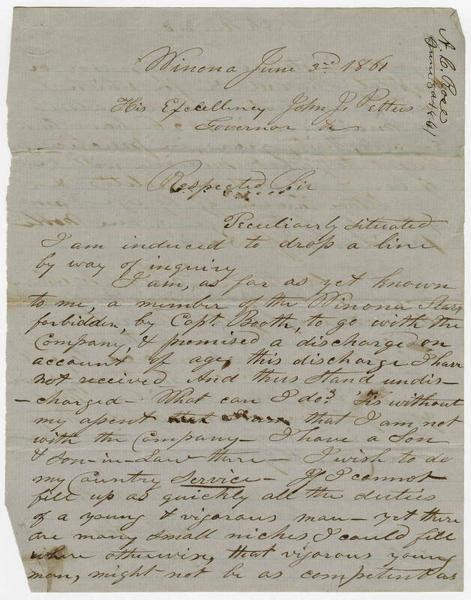 Winona June 3rd 1861
His Excellency John J. Pettus
Governor &c
Respected Sir
Peculiarly situated
I am induced to drop a line
by way of inquiry
I am, as far as yet known
to me, a member of the Winona Stars
forbidden, by Capt. Booth, to go with the
Company, & promised a discharge on
account of age, this discharge I have
not received. And thus stand undis-
charged - What can I do? Tis without
my assent that I am not
with the Company - I have a Son
& Son-in-Law there - I wish to do
my Country service - If I cannot
fill up as quickly all the duties
of a young & vigorous man - yet there
are many small niches I could fill
where otherwise, that vigorous young
man, might not be as competent as
June 3d 1861